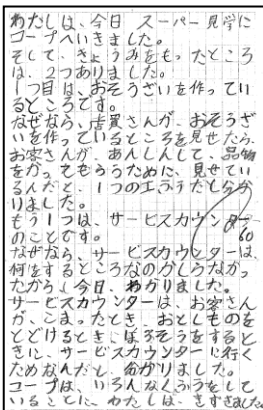 わたしは、今日 スーパー見学に
コープへいきました。
そして、きょうみをもったところ
は、2つありました。
1つ目は、おそうざいを作ってい
るところです。
なぜなら、店員さんが、おそうざ
いを作っているところを見せたら、
お客さんが、あんしんして、品物
をかってもらうために、見せてい
るんだと、1つのエ
りました。
もう1つは、サービスカウンター
のことです。
なぜなら、サービスカウンターは、
何をするところなのかしらなかっ
たから、今日、わかりました。
サービスカウンターは、お客さん
が、こまったとき、おとしものを
とどけるとき、ほうそうをすると
きに、サービスカウンターに行く
ためなんだと、分かりました。
コープは、いろんなくふうをして
いることに、わたしは、きずきました。
60